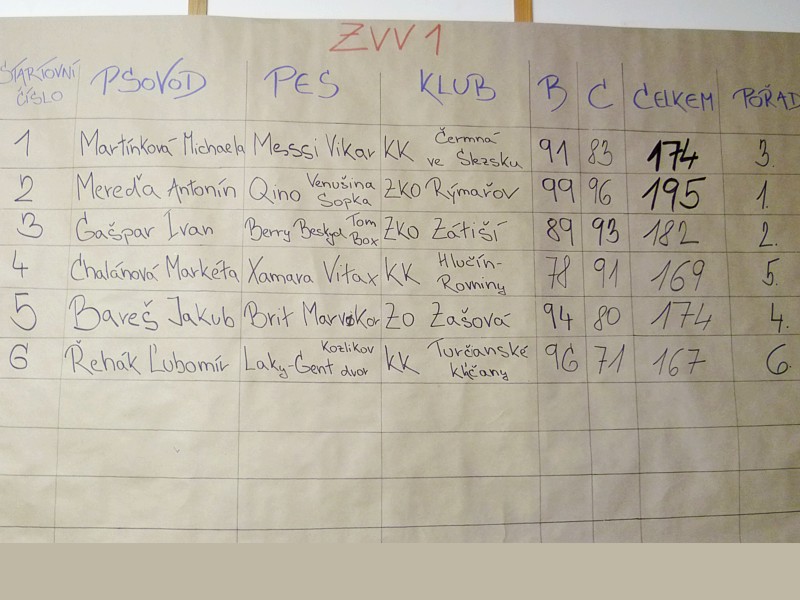 ZVV 1
STARTOVNÍ ČÍSLO PSOVOD PES KLUB B C CELKEM POŘAD
1 Martínková Michaela Messsi Vikar KK Čermná ve Slezsku 91 83 174 3.
2 Mereďa Antonín Qino Venušina Sopka ZKO Rýmařov 99 96 195 1.
3 Gašpar Ivan Berry Beskyd Tom Box ZKO Zátiší 89 93 182 2.
4 Chalánová Markéta Xamara Vitax KK Hlučín-Rovniny 78 91 169 5.
5 Bareš Jakub Brit Marvokor ZO Zašová 94 80 174 4.
6 Řehák Ľubomír Laky-Gent Kozlikov dvor KK Turčanské 96 71 167 6.